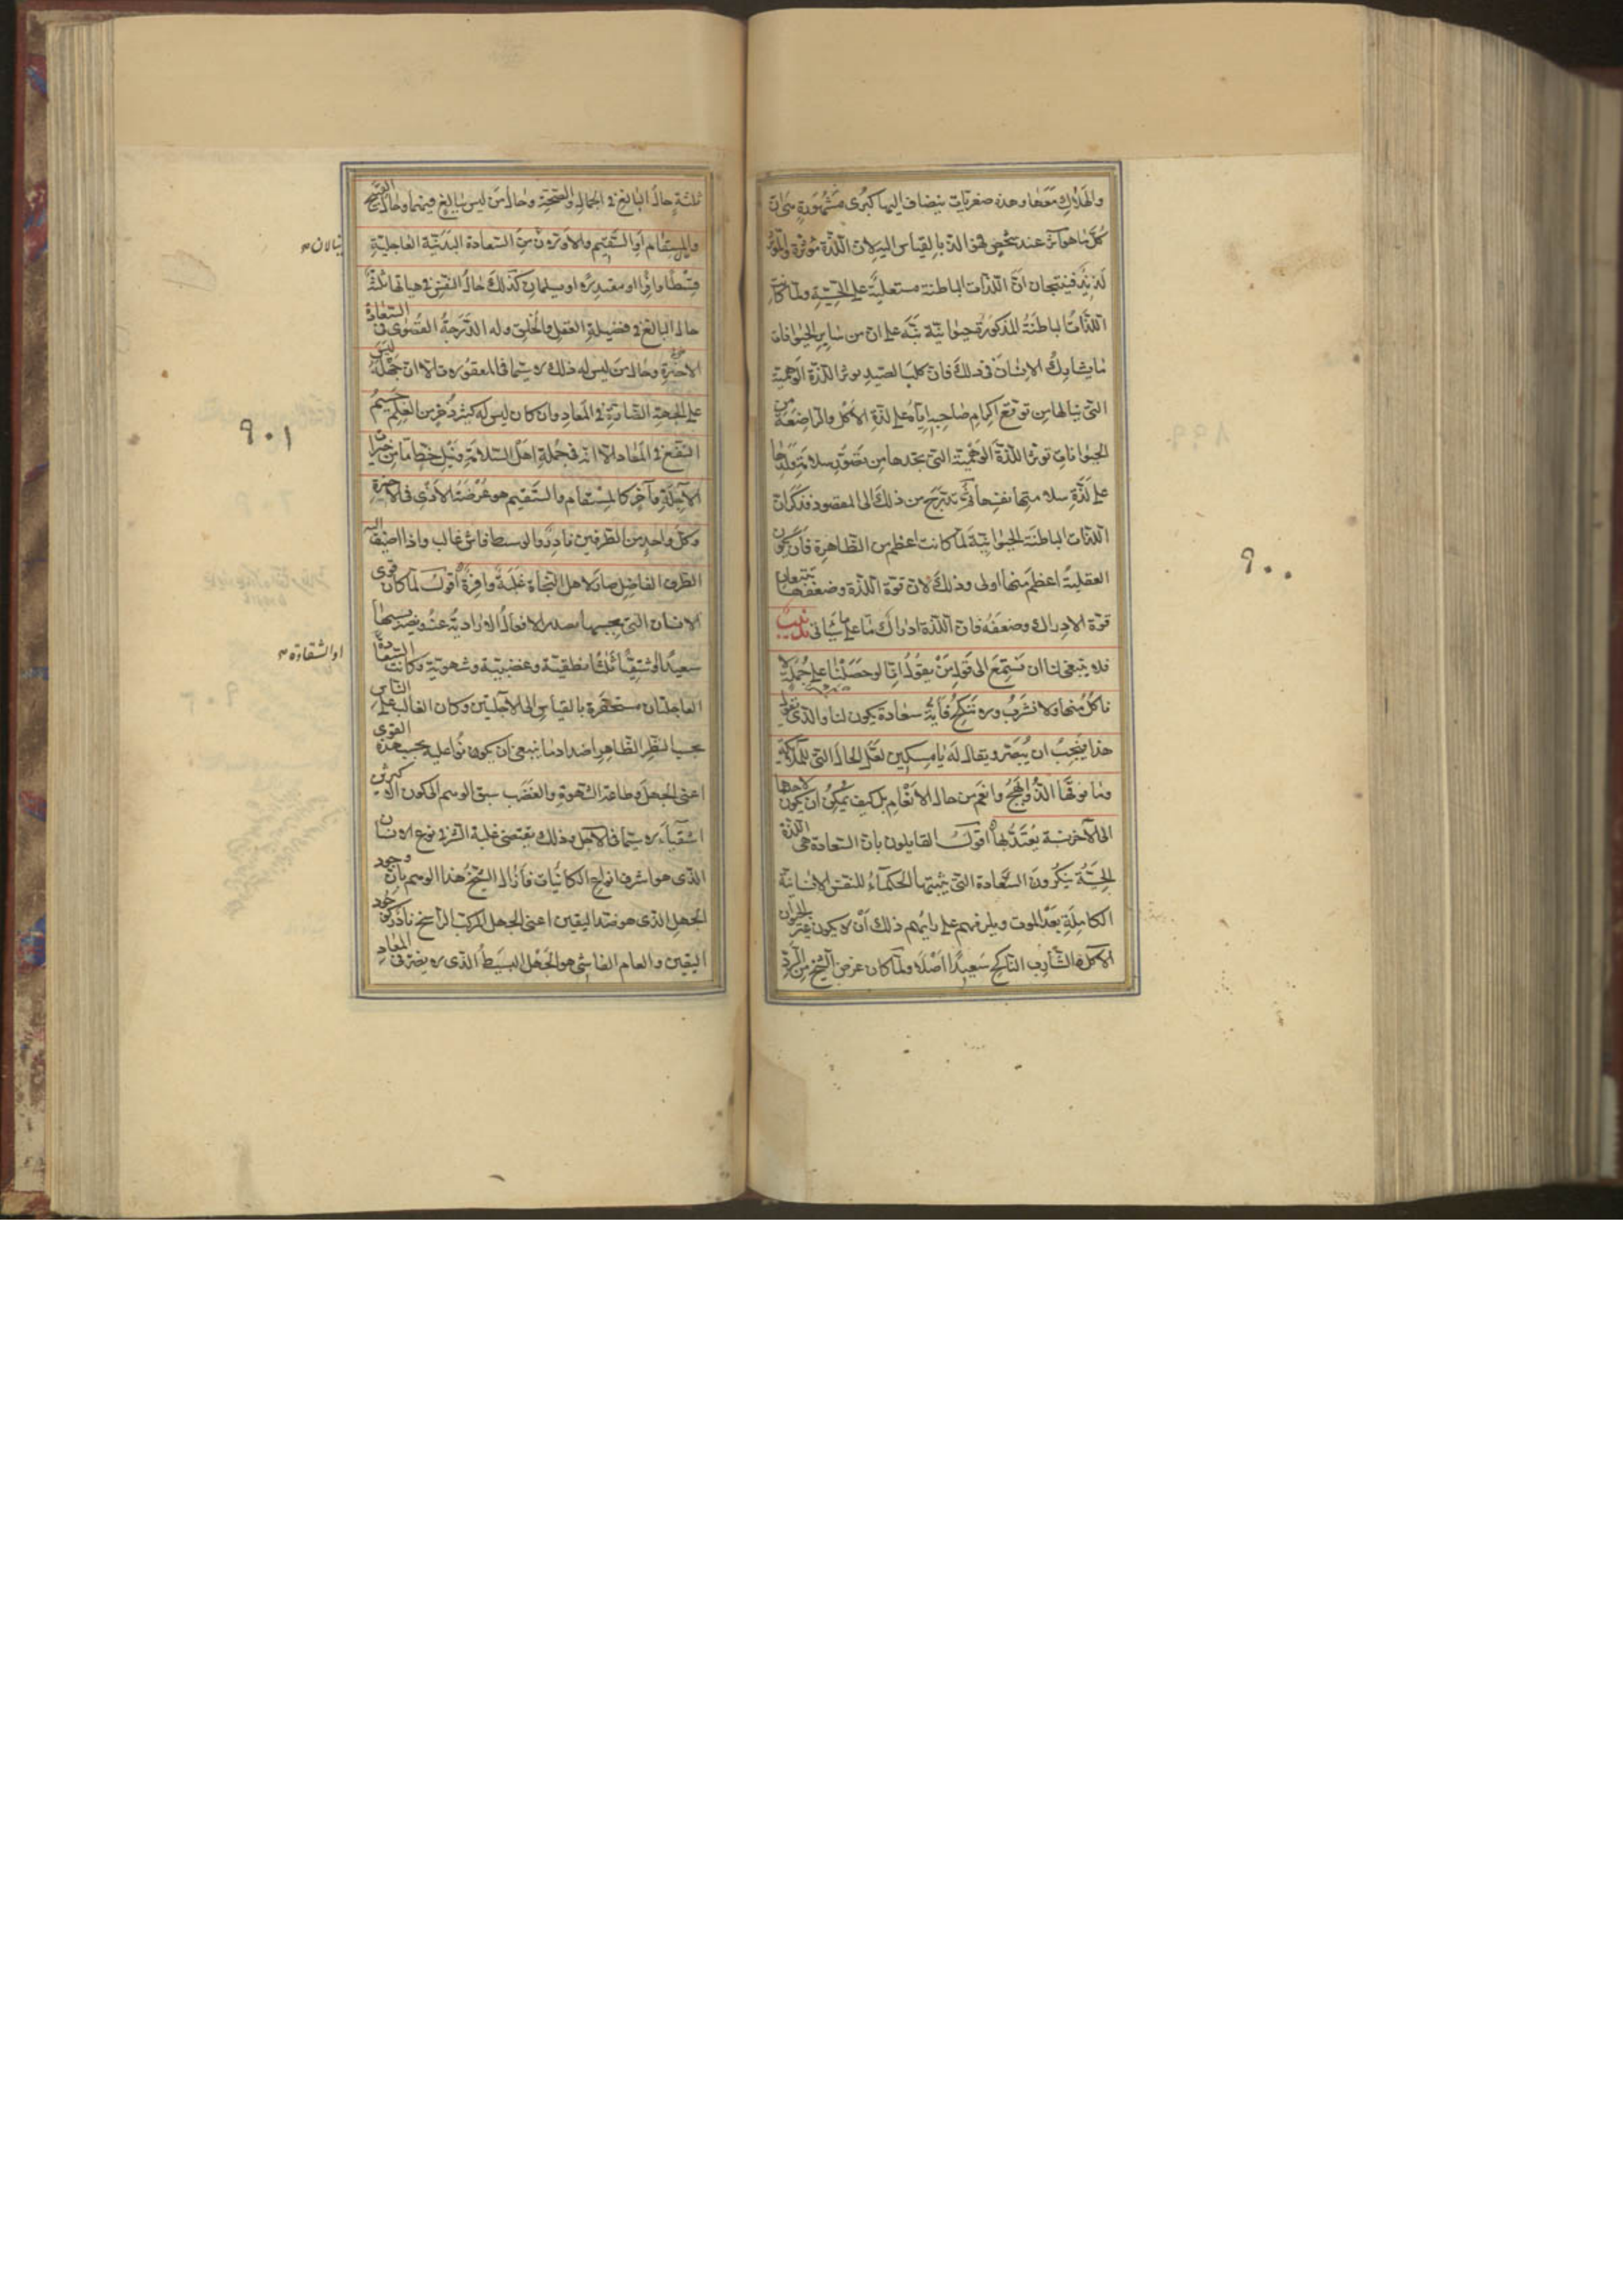 والهلاك معها وهذه صغريات ينضاف اليها كبرى مشهورة هى ان
كل ما هو آثر عند شخص فهو الذ بالقياس اليه لان اللذة مؤثرة والمؤثر
لذيذ فينتجان ان اللذات الباطنة مستعلية على الحسية ولما كانت
اللذات الباطنة المذكورة حيوانية نبه على ان من ساير الحيوانات
ما يشارك الانسان فى ذلك فان كلب الصيد يوثر اللذة الوهمية
التى ينالها من توقع اكرام صاحبه اياه على لذة الاكل والراضعة من
الحيوانات توثر اللذة الوهمية التى تجدها من تصور سلامة ولدها
على لذة سلامتها نفسها ثم تدرج من ذلك الى المقصود فذكر ان
اللذات الباطنة الحيوانية لما كانت اعظم من الظاهرة فان يكون
العقلية اعظم منها اولى وذلك لان قوة اللذة وضعفها يتبعان
قوة الادراك وضعفه فان اللذة ادراك ما على ما سياتى تذنيب
فلا ينبغى لنا ان نستمع الى قول من يقول انا لو حصلنا على جملة لا
ناكل منها ولا نشرب ولا ننكح فاية سعادة يكون لنا والذى يقول
هذا فيجب ان يبصر ويقال له يا مسكين لعل الحال التى للملائكة
وما فوقها الذ وابهج وانعم من حال الانعام بل كيف يمكن ان يكون لاحدها
الى الاخر نسبة يعتد بها اقول القايلون بان السعادة هى اللذة
الحسية ينكرون السعادة التى يثبتها الحكماء للنفس الانسانية
الكاملة بعد الموت ويلزمهم على رايهم ذلك ان لا يكون غير الحيوان
الآكل الشارب الناكح سعيدا اصلا ولما كان غرض الشيخ من الرد
٩٠٠
ثلثة حال البالغ فى الجمال والصحة وحال من ليس ببالغ فيهما وحال القبيح
والمسقام او السقيم والاول والثانى ينالان من السعادة البدنية العاجلية
قسطا وافرا او معتدلا او يسلمان كذلك حال النفس فى هياتها ثلثة
حال البالغ فى فضيلة العقل والخلق وله الدرجة القصوى فى السعادة
الاخروية وحال من ليس له ذلك لا سيما فى المعقولات الا ان جهله ليس
على الجهة الضارة فى المعاد وان كان ليس له كثير ذخر من العلم جسيم
النفع فى المعاد الا انه فى جملة اهل السلامة ونيل حظ ما من الخيرات
الآجلة وآخر كالمسقام والسقيم هو عرضة الاذى فى الآخرة
وكل واحد من الطرفين نادر والوسط فاش غالب واذا اضيف اليه
الطرف الفاضل صار لاهل النجاة غلبة وافرة اقول لما كان قوى
الانسان التى بحسبها يصدر الافعال الارادية عنه ويصير بسببها
سعيدا او شقيا ثلثا نطقية وغضبية وشهوية وكانت السعادة
العاجلتان مستحقرة بالقياس الى الآجلتين وكان الغالب على الناس
بحسب النظر الظاهر اضداد ما ينبغى ان يكونوا عليه بحسب هذه القوى
اعنى الجهل وطاعة الشهوة والغضب سبق الوهم الى كون اكثرهم
اشقياء لا سيما فى الآجل وذلك يقتضى غلبة الشر فى نوع الانسان
الذى هو اشرف انواع الكائنات فازال الشيخ هذا الوهم بان وجود
الجهل الذى هو ضد اليقين اعنى الجهل المركب الراسخ نادر كوجود
اليقين والعام الفاشى هو الجهل البسيط الذى لا يضر فى المعاد
ينالان
او الشقاوة
٩٠١